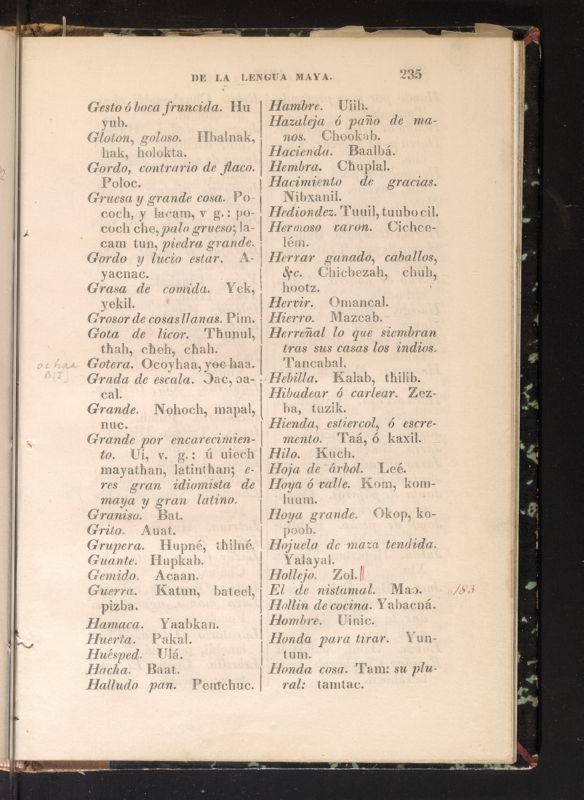 DE LA LENGUA MAYA. 235
Gesto ó boca fruncida. Hu
yub.
Gloton, goloso. Hbalnak,
hak, holokta.
Gordo, contrario de flaco.
Poloc.
Gruesa y grande cosa. Po-
coch, y lacam, v g.: po-
coch che, palo grueso; la-
cam tun, piedra grande.
Gordo y lucio estar. A-
yacnac.
Grasa de comida. Yek,
yekil.
Grosor de cosas llanas. Pim.
Gota de licor. Tħunul,
tħah, cħeh, cħah.
ochaa
Gotera. Ocoyhaa, yoc haa.
Grada de escala. Ɔac, ɔa-
cal.
Grande. Nohoch, mapal,
nuc.
Grande por encarecimien-
to. Uí, v. g.: ú uiech
mayathan, latinthan; e-
res gran idiomista de
maya y gran latino.
Graniso. Bat.
Grito. Auat.
Grupera. Hupné, tħilné.
Guante. Hupkab.
Gemido. Acaan.
Guerra. Katun, bateel,
pizba.
Hamaca. Yaabkan.
Huerta. Pakal.
Huésped. Ulá.
Hacha. Baat.
Halludo pan. Pemchuc.
Hambre. Uiih.
Hazaleja ó paño de ma-
nos. Chookab.
Hacienda. Baalbá.
Hembra. Cħuplal.
Hacimiento de gracias.
Nibxanil.
Hediondez. Tuuil, tuubocil.
Hermoso varon. Cichce-
lém.
Herrar ganado, caballos,
&c. Chicbezah, chuh,
hootz.
Hervir. Omancal.
Hierro. Mazcab.
Herreñal lo que siembran
tras sus casas los indios.
Tancabal.
Hebilla. Kalab, tħilib.
Hibadear ó carlear. Zez-
ba, tuzik.
Hienda, estiercol, ó escre-
mento. Taá, ó kaxil.
Hilo. Kuch.
Hoja de árbol. Leé.
Hoya ó valle. Kom, kom-
luum.
Hoya grande. Okop, ko-
poob.
Hojuela de maza tendida.
Yalayal.
Hollejo. Zol.
El de nistamal. Maɔ. 183
Hollin de cocina. Yabacná.
Hombre. Uinic.
Honda para tirar. Yun-
tum.
Honda cosa. Tam: su plu-
ral: tamtac.